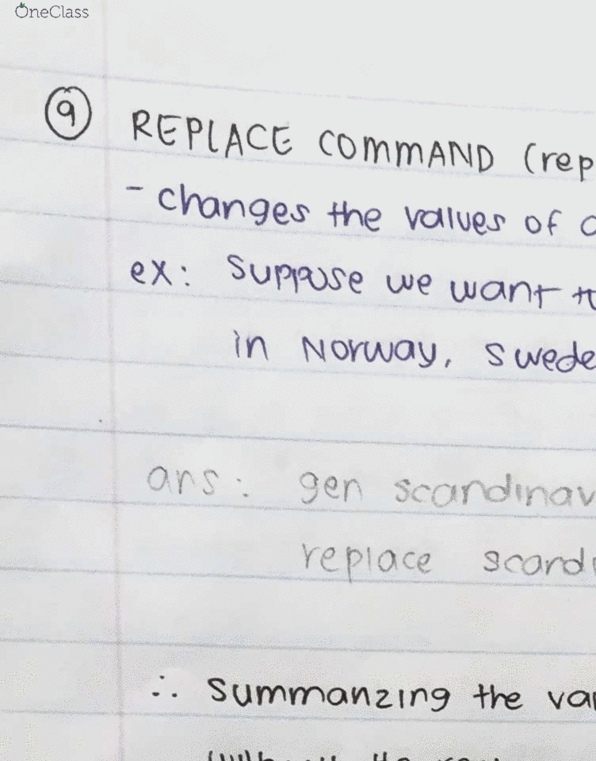 OneClass
9 REPLACE COMMAND (rep
- changes the values of
ex: Suppose we want
in Norway, Swede
ans: gen scandinav
replace scand
∴ summarizing the var